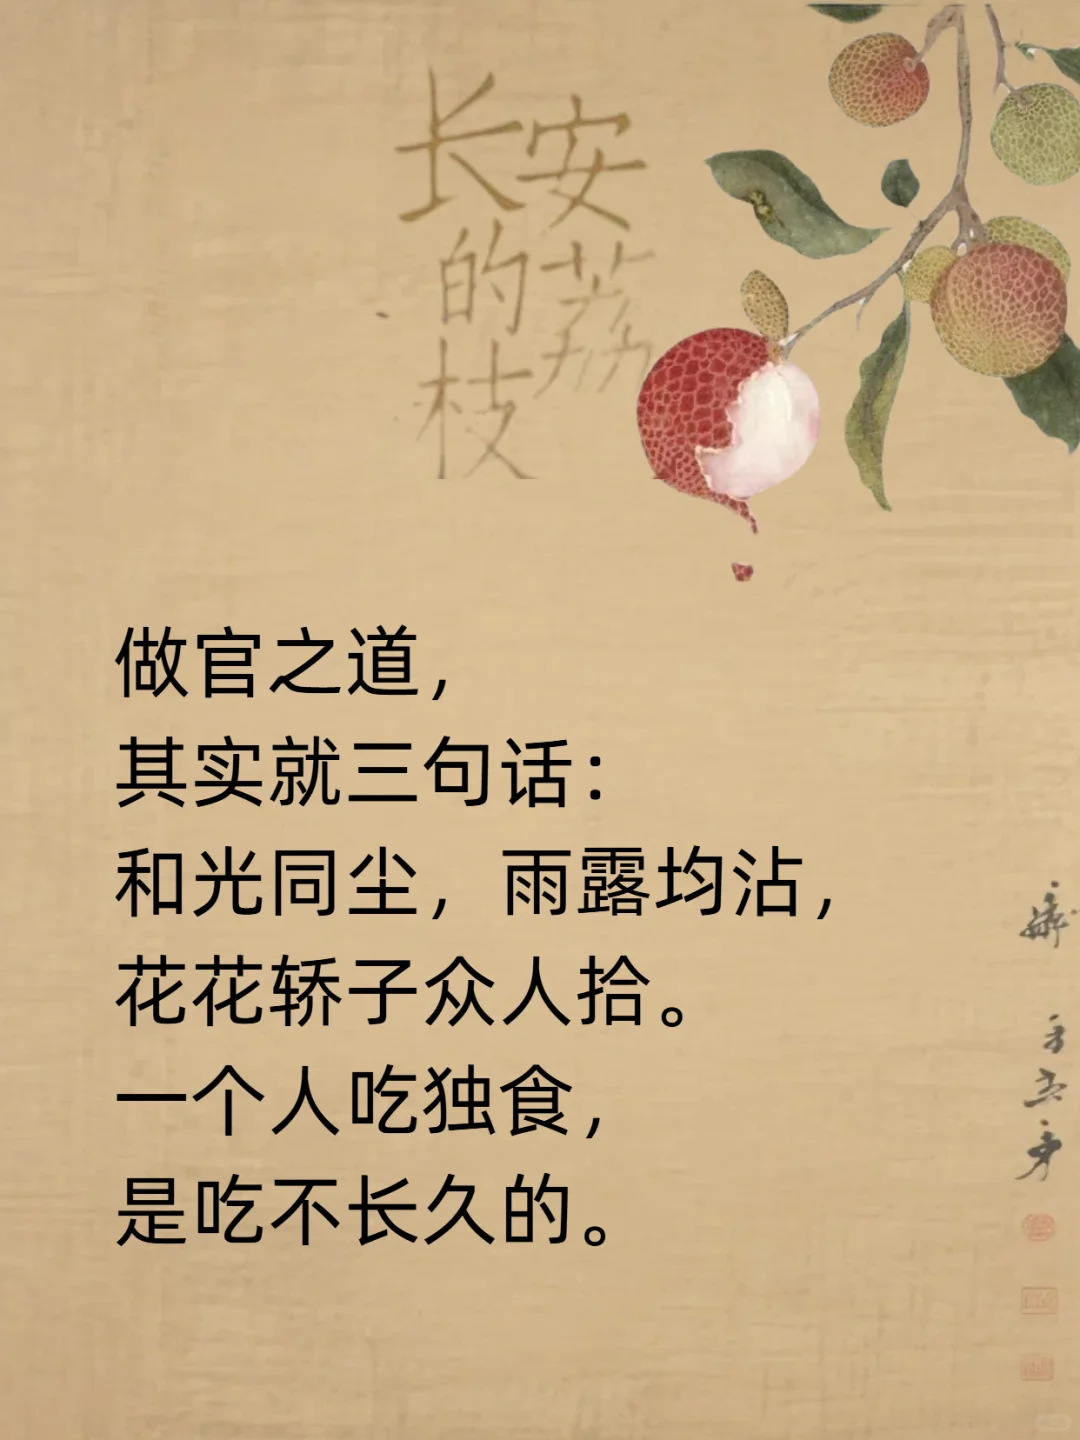 长安
的荔
枝
做官之道，
其实就三句话：
和光同尘，雨露均沾，
花花轿子众人拾。
一个人吃独食，
是吃不长久的。